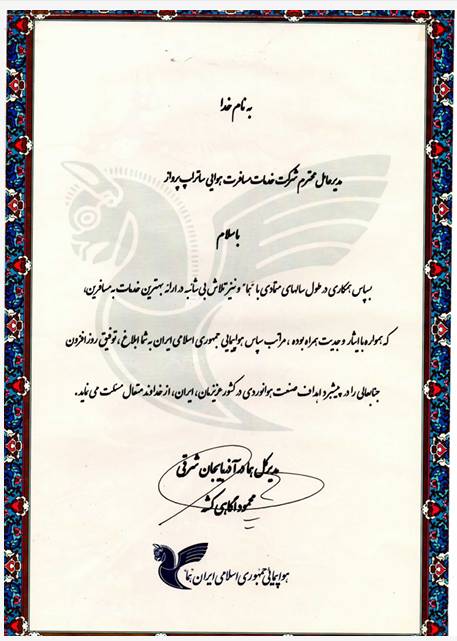 به نام خدا
مدیرعامل محترم شرکت خدمات مسافرت هوایی ساتراپ پرواز
باسلام
بپاس همکاری در طول سالهای متمادی با "هما" و نیز تلاش بی شائبه در ارائه بهترین خدمات به مسافرین،
که همواره با ایثار و جدیت همراه بوده، مراتب سپاس هواپیمایی جمهوری اسلامی ایران به شما ابلاغ، توفیق روزافزون
جنابعالی را در پیشبرد اهداف صنعت هوانوردی در کشور عزیزمان، ایران، از خداوند متعال مسئلت می نماید.
مدیرکل هما در آذربایجان شرقی
محمود آگاهی
هواپیمایی جمهوری اسلامی ایران "هما"